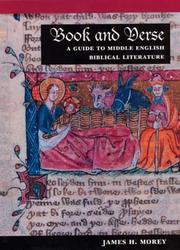 Book and Verse
A GUIDE TO MIDDLE ENGLISH
BIBLICAL LITERATURE
JAMES H. MOREY